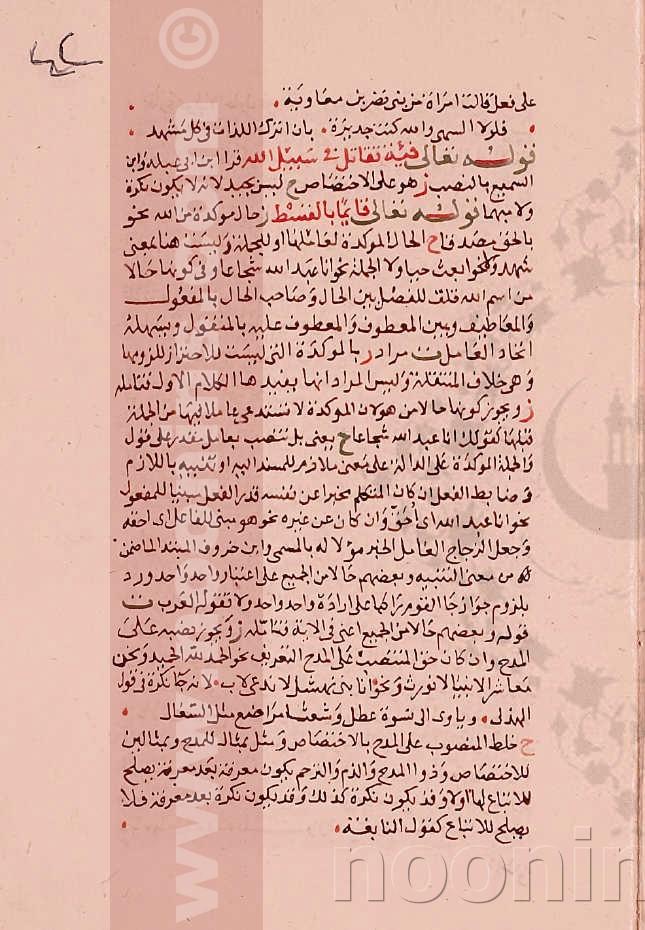 على فعل قالت امراة من بني نضر بن معاوية
فلولا السهى والله كنت جديرة بان اترك اللذات في كل مشهد
قوله تعالى فئة تقاتل في سبيل الله قرا ابن ابي عبلة وابن
السميع بالنصب ز هو على الاختصاص ح ليس بجيد لانه لا يكون نكرة
ولا مبهما قوله تعالى قايما بالقسط ز حال موكدة من الله نحو
بالحق مصدقا ح الحال الموكدة لعاملها او للجملة وليست هنا بمعنى
شهد ولا نحو ابعث حيا ولا الجملة نحو انا عبد الله شجاعا وفي كونها حالا
من اسم الله قلق للفصل بين الحال وصاحب الحال بالمفعول
والمعاطيف وبين المعطوف والمعطوف عليه بالمفعول ويسهله
اتحاد العامل ن مراد ز بالموكدة التي ليست للاحتراز للزومها
وهي خلاف المنتقلة وليس المراد انها يفيدها الكلام الاول فتامله
ز ويجوز كونها حالا من هو لان الموكدة لا تستدعي عاملا فيها من الجملة
قبلها كقولك انا عبد الله شجاعا ح يعنى بل تنتصب بعامل مقدر على قول
والجملة الموكدة على الدالة على معنى ملازم للمسند اليه او تشبيه باللازم
وضابط الفعل ان كان المتكلم مخبرا عن نفسه قدر الفعل مبنيا للمفعول
نحو انا عبد الله اى احق وان كان عن غيره نحو هو مبني للفاعل اى احقه
وجعل الزجاج العامل الخبر مؤلا له بالمسمى وابن خروف المبتدا لما ضمن
من معنى التنبيه وبعضهم حالا من الجميع على اعتبار واحد واحد ورد
بلزوم جواز جا القوم راكبا على ارادة واحد واحد ولا تقوله العرب ن
قوله وبعضهم حالا من الجميع اعنى في الاية فتامله ز ويجوز نصبه على
المدح وان كان حق المنتصب على المدح التعريف نحو الحمد لله الحميد ونحن
معاشر الانبيا لا نورث ونحو انا بنى نهشل لا ندعى لاب لانه جا نكرة في قول
الهذلى وياوى الى نسوة عطل وشعثا مراضيع مثل السعال
ح خلط المنصوب على المدح بالاختصاص ومثل بمثال للمدح وبمثالين
للاختصاص وذوا المدح والذم والترحم يكون معرفة بعد معرفة يصلح
للاتباع لها اولا وقد يكون نكرة كذلك وقد يكون نكرة بعد معرفة فلا
يصلح للاتباع كقول النابغة
www.
noonin